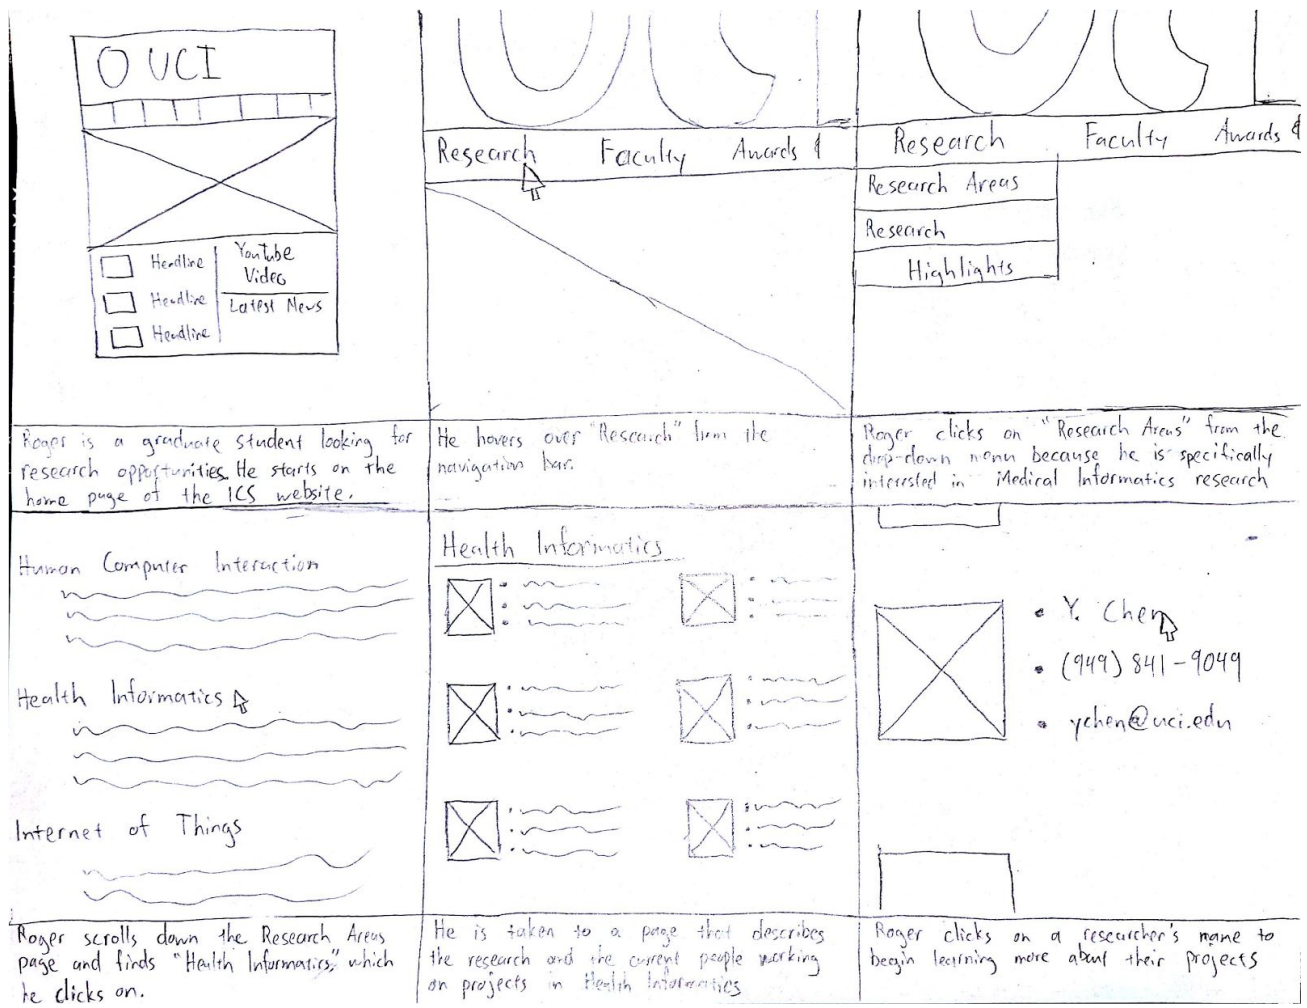 O UCI
Headline
Headline
Headline
YouTube
Video
Latest News
Roger is a graduate student looking for
research opportunities. He starts on the
home page of the ICS website.
UCI
Research Faculty Awards &
He hovers over "Research" from the
navigation bar.
UCI
Research Faculty Awards &
Research Areas
Research
Highlights
Roger clicks on "Research Areas" from the
drop-down menu because he is specifically
interested in Medical Informatics research
Human Computer Interaction
Health Informatics
Internet of Things
Roger scrolls down the Research Areas
page and finds "Health Informatics," which
he clicks on.
Health Informatics
He is taken to a page that describes
the research and the current people working
on projects in Health Informatics
• Y. Chen
• (949) 841-9049
• ychen@uci.edu
Roger clicks on a researcher's name to
begin learning more about their projects